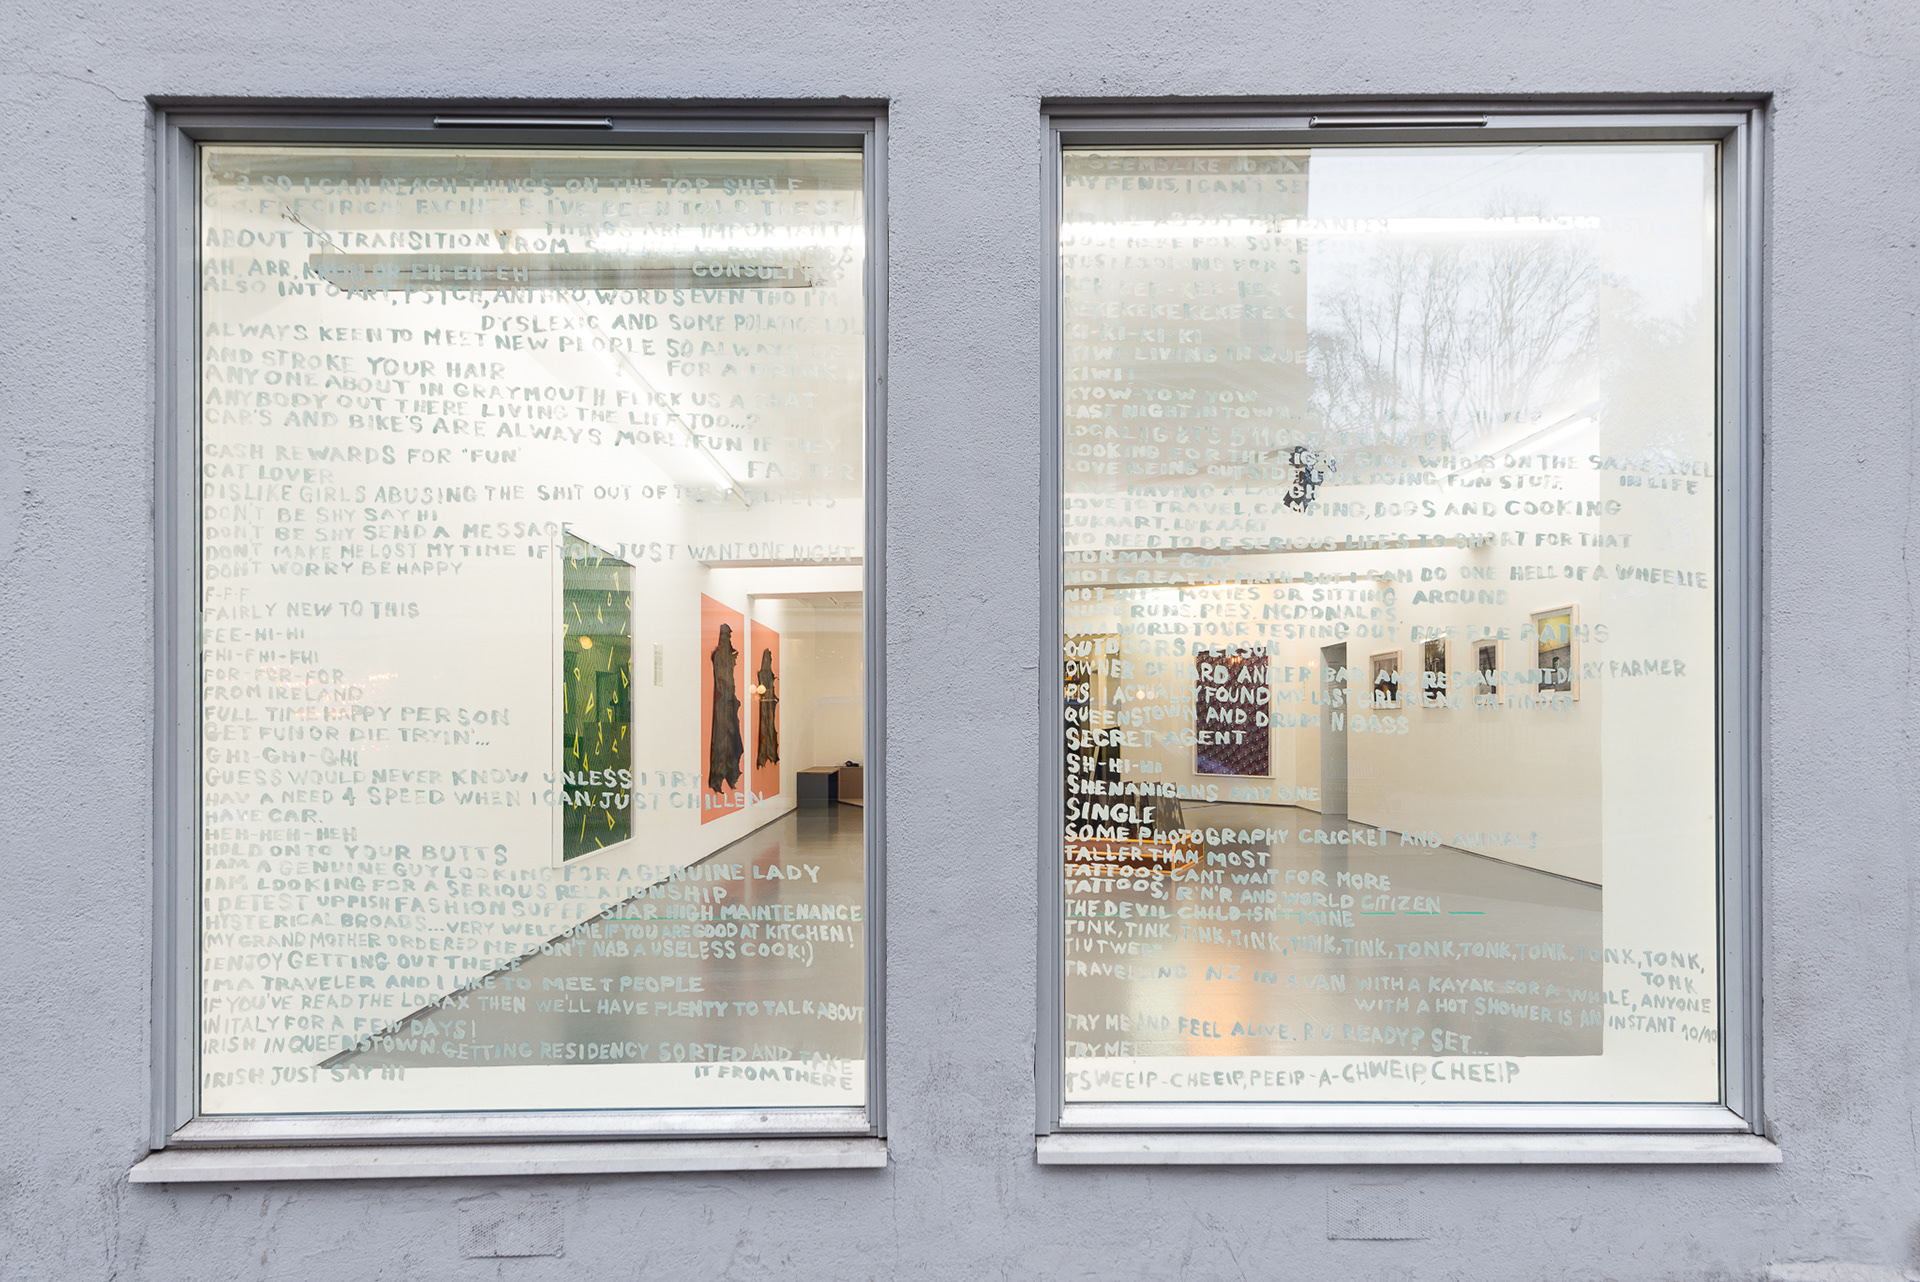 6'3 SO I CAN REACH THINGS ON THE TOP SHELF
I'VE BEEN TOLD THESE
THINGS ARE IMPORTANT
ABOUT TO TRANSITION FROM
AH, ARR, EH-EH-EH
CONSULTING
ALSO INTO ART, PSYCH, ANTHRO, WORDS EVEN THO I'M
DYSLEXIC AND SOME POLATICS LOL
ALWAYS KEEN TO MEET NEW PLOPLE SO ALWAYS
FOR A DRINK
AND STROKE YOUR HAIR
ANYONE ABOUT IN GRAYMOUTH FLICK US A CHAT
ANYBODY OUT THERE LIVING THE LIFF TOO...?
CAR'S AND BIKE'S ARE ALWAYS MORE FUN IF THEY
FASTER
CASH REWARDS FOR "FUN"
CAT LOVER
DISLIKE GIRLS ABUSING THE SHIT OUT OF THESE FILTERS
DON'T BE SHY SAY HI
DON'T BE SHY SEND A MESSAGE
DON'T MAKE ME LOST MY TIME IF YOU JUST WANT ONE NIGHT
DON'T WORRY BE HAPPY
F-F-F
FAIRLY NEW TO THIS
FEE-HI-HI
FHI-FHI-FHI
FOR-FOR-FOR
FROM IRELAND
FULL TIME HAPPY PERSON
GET FUN OR DIE TRYIN'...
GHI-GHI-GHI
GUESS WOULD NEVER KNOW UNLESS I TRY
HAV A NEED 4 SPEED WHEN I CAN JUST CHILLEN
HAVE CAR.
HEH-HEH-HEH
HOLD ON TO YOUR BUTTS
I AM A GENUINE GUY LOOKING FOR A GENUINE LADY
I AM LOOKING FOR A SERIOUS RELATIONSHIP
I DETEST UPPISH FASHION SUPER STAR HIGH MAINTENANCE
HYSTERICAL BROADS...VERY WELCOME IF YOU ARE GOOD AT KITCHEN!
(MY GRANDMOTHER ORDERED ME DON'T NAB A USELESS COOK!)
I ENJOY GETTING OUT THERE
I'M A TRAVELER AND I LIKE TO MEET PEOPLE
IF YOU'VE READ THE LORAX THEN WE'LL HAVE PLENTY TO TALK ABOUT
IN ITALY FOR A FEW DAYS!
IRISH IN QUEENSTOWN. GETTING RESIDENCY SORTED AND TAKE
IT FROM THERE
IRISH JUST SAY HI
SEEMS LIKE NO MA
MY PENIS, I CAN'T SE
ABOUT THE BANTER
JUST HERE FOR SOME FUN
JUST LOOKING FOR S
KEKEKEKEKEKEKEK
KI-KI-KI-KI
KIWI LIVING IN QUE
KIWI!
KYOW-YOW, YOW
LAST NIGHT IN TOWN...
LOOKING FOR THE RIGHT GIRL WHO'S ON THE SAME LEVEL
IN LIFE
LOVE BEING OUTSIDE LOVE DOING FUN STUFF
LOVE HAVING A LAUGH
LOVE TO TRAVEL, CAMPING, DOGS AND COOKING
LUKAART, LUKAART
NO NEED TO BE SERIOUS LIFE'S TO SHORT FOR THAT
NORMAL GUY
NOT GREAT AT MATH BUT I CAN DO ONE HELL OF A WHEELIE
NOT INTO MOVIES OR SITTING AROUND
NUDE RUNS. PIES. MCDONALDS
ON A WORLD TOUR TESTING OUT BUBBLE BATHS
OUTDOORS PERSON
OWNER OF HARD ANTLER BAR AND RESTAURANT DAIRY FARMER
P.S. I ACTUALLY FOUND MY LAST GIRLFRIEND ON TINDER
QUEENSTOWN AND DRUM N BASS
SECRET AGENT
SH-HI-HI
SHENANIGANS ANYONE
SINGLE
SOME PHOTOGRAPHY CRICKET AND ANIMALS
TALLER THAN MOST
TATTOOS CANT WAIT FOR MORE
TATTOOS, R'N'R AND WORLD CITIZEN
THE DEVIL CHILD ISN'T MINE
TINK, TINK, TINK, TINK, TINK, TINK, TONK, TONK, TONK, TONK, TONK,
TONK
TIUTWEET
TRAVELLING NZ IN A VAN WITH A KAYAK FOR A WHILE, ANYONE
WITH A HOT SHOWER IS AN INSTANT 10/10
TRY ME AND FEEL ALIVE. R U READY? SET...
TRY ME!
TSWEEIP-CHEEIP, PEEIP-A-CHWEIP, CHEEIP